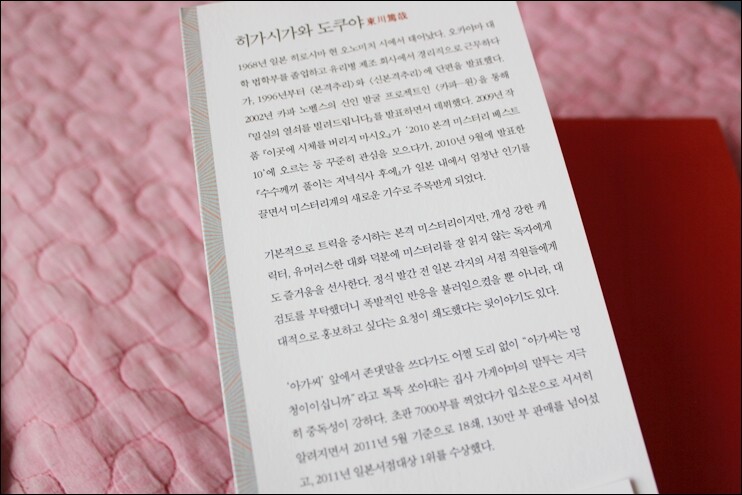 히가시가와 도쿠야 東川篤哉
1968년 일본 히로시마 현 오노미치 시에서 태어났다. 오카야마 대
학 법학부를 졸업하고 유리병 제조 회사에서 경리직으로 근무하다
가, 1996년부터 〈본격추리〉와 〈신본격추리〉에 단편을 발표했다.
2002년 카파 노벨스의 신인 발굴 프로젝트인 〈카파-원〉을 통해
『밀실의 열쇠를 빌려드립니다』를 발표하면서 데뷔했다. 2009년 작
품 『이곳에 시체를 버리지 마시오』가 '2010 본격 미스터리 베스트
10'에 오르는 등 꾸준히 관심을 모으다가, 2010년 9월에 발표한
『수수께끼 풀이는 저녁식사 후에』가 일본 내에서 엄청난 인기를
끌면서 미스터리계의 새로운 기수로 주목받게 되었다.
기본적으로 트릭을 중시하는 본격 미스터리이지만, 개성 강한 캐
릭터, 유머러스한 대화 덕분에 미스터리를 잘 읽지 않는 독자에게
도 즐거움을 선사한다. 정식 발간 전 일본 각지의 서점 직원들에게
검토를 부탁했더니 폭발적인 반응을 불러일으켰을 뿐 아니라, 대
대적으로 홍보하고 싶다는 요청이 쇄도했다는 뒷이야기도 있다.
'아가씨' 앞에서 존댓말을 쓰다가도 어쩔 도리 없이 "아가씨는 멍
청이이십니까"라고 톡톡 쏘아대는 집사 가게야마의 말투는 지극
히 중독성이 강하다. 초판 7000부를 찍었다가 입소문으로 서서히
알려지면서 2011년 5월 기준으로 18쇄, 130만 부 판매를 넘어섰
고, 2011년 일본서점대상 1위를 수상했다.